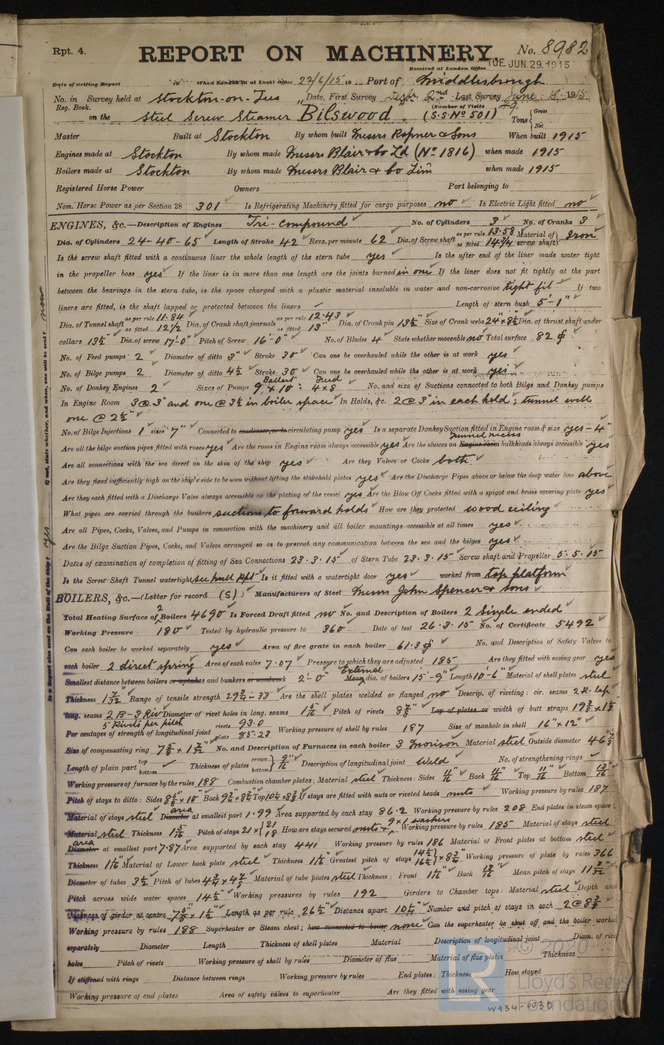 Rpt. 4.
REPORT ON MACHINERY
No. 8982
Received at London Office TUE JUN. 29. 1915
Date of writing Report 19 When handed in at Local Office 22/6/15 Port of Middlesbrough
No. in Survey held at Stockton-on-Tees Date, First Survey Sept. 2nd Last Survey June 18 1915
Reg. Book.
(Number of Visits 29)
on the Steel Screw Steamer "Bilswood" (S.S. No 501) Tons Gross Net
Master Built at Stockton By whom built Messrs Ropner & Sons When built 1915
Engines made at Stockton By whom made Messrs Blair & Co Ld (No 1816) when made 1915
Boilers made at Stockton By whom made Messrs Blair & Co Lim when made 1915
Registered Horse Power Owners Port belonging to
Nom. Horse Power as per Section 28 301 Is Refrigerating Machinery fitted for cargo purposes no Is Electric Light fitted no
ENGINES, &c.—Description of Engines Tri-Compound No. of Cylinders 3 No. of Cranks 3
Dia. of Cylinders 24-40-65 Length of Stroke 42 Revs. per minute 62 Dia. of Screw shaft as per rule 13.58 as fitted 14 3/4 Material of screw shaft Iron
Is the screw shaft fitted with a continuous liner the whole length of the stern tube yes Is the after end of the liner made water tight
in the propeller boss yes If the liner is in more than one length are the joints burned in one If the liner does not fit tightly at the part
between the bearings in the stern tube, is the space charged with a plastic material insoluble in water and non-corrosive tight fit If two
liners are fitted, is the shaft lapped or protected between the liners Length of stern bush 5'-1"
Dia. of Tunnel shaft as per rule 11.84 as fitted 12 1/2 Dia. of Crank shaft journals as per rule 12.43 as fitted 13" Dia. of Crank pin 13 1/2 Size of Crank webs 24" x 8 1/2 Dia. of thrust shaft under
collars 13 1/2 Dia. of screw 17'-0" Pitch of Screw 16'-0" No. of Blades 4 State whether moveable no Total surface 82
No. of Feed pumps 2 Diameter of ditto 3" Stroke 30" Can one be overhauled while the other is at work yes
No. of Bilge pumps 2 Diameter of ditto 4 1/2 Stroke 30 Can one be overhauled while the other is at work yes
No. of Donkey Engines 2 Sizes of Pumps Ballast 9 x 10 Feed 4 x 8 No. and size of Suctions connected to both Bilge and Donkey pumps
In Engine Room 3 @ 3" and one @ 3 1/2 in boiler space In Holds, &c. 2 @ 3" in each hold; tunnel well
one @ 2 1/2"
No. of Bilge Injections 1 sizes 7" Connected to condenser, or to circulating pump yes Is a separate Donkey Suction fitted in Engine room & size yes - 4"
Are all the bilge suction pipes fitted with roses yes Are the roses in Engine room always accessible yes Are the sluices on Engine room bulkheads always accessible yes
Are all connections with the sea direct on the skin of the ship yes Are they Valves or Cocks both
Are they fixed sufficiently high on the ship's side to be seen without lifting the stokehold plates yes Are the Discharge Pipes above or below the deep water line above
Are they each fitted with a Discharge Valve always accessible on the plating of the vessel yes Are the Blow Off Cocks fitted with a spigot and brass covering plate yes
What pipes are carried through the bunkers suctions to forward holds How are they protected wood ceiling
Are all Pipes, Cocks, Valves, and Pumps in connection with the machinery and all boiler mountings accessible at all times yes
Are the Bilge Suction Pipes, Cocks, and Valves arranged so as to prevent any communication between the sea and the bilges yes
Dates of examination of completion of fitting of Sea Connections 23.3.15 of Stern Tube 23.3.15 Screw shaft and Propeller 5.5.15
Is the Screw Shaft Tunnel watertight see hull Rpt Is it fitted with a watertight door yes worked from top platform
BOILERS, &c.—(Letter for record (S)) Manufacturers of Steel Messrs John Spencer & Sons
Total Heating Surface of 2 Boilers 4690 Is Forced Draft fitted no No. and Description of Boilers 2 single ended
Working Pressure 180 Tested by hydraulic pressure to 360 Date of test 26.3.15 No. of Certificate 5492
Can each boiler be worked separately yes Area of fire grate in each boiler 61.3 No. and Description of Safety Valves to
each boiler 2 direct spring Area of each valve 7.07 Pressure to which they are adjusted 185 Are they fitted with easing gear yes
Smallest distance between boilers or uptakes and bunkers or woodwork 2'-0" External Mean dia. of boilers 15'-9" Length 10'-6" Material of shell plates steel
Thickness 1 7/32 Range of tensile strength 29 1/2-33 Are the shell plates welded or flanged no Descrip. of riveting: cir. seams 2 R. lap
long. seams 2 B-S Riv 5 Rivets per pitch Diameter of rivet holes in long. seams 1 5/16 Pitch of rivets 8 7/8 Lap of plates or width of butt straps 19 1/2 x 1 1/4
Per centages of strength of longitudinal joint rivets 93.0 plate 85.23 Working pressure of shell by rules 187 Size of manhole in shell 16" x 12"
Size of compensating ring 7 3/4 x 1 7/32 No. and Description of Furnaces in each boiler 3 Morison Material steel Outside diameter 46 3/4
Length of plain part top bottom Thickness of plates crown bottom 9/16 Description of longitudinal joint Weld No. of strengthening rings
Working pressure of furnace by the rules 188 Combustion chamber plates: Material steel Thickness: Sides 11/16 Back 11/16 Top 11/16 Bottom 13/16
Pitch of stays to ditto: Sides Back Top If stays are fitted with nuts or riveted heads nuts Working pressure by rules 187
Material of stays steel area Diameter at smallest part 1.99 Area supported by each stay 86.2 Working pressure by rules 208 End plates in steam space:
Material steel Thickness 1 1/16 Pitch of stays 21 x How are stays secured nuts & 9 x 1 washers Working pressure by rules 185 Material of stays steel
area Diameter at smallest part 7.87 Area supported by each stay 441 Working pressure by rules 186 Material of Front plates at bottom steel
Thickness 1 1/16 Material of Lower back plate steel Thickness 1 1/16 Greatest pitch of stays Working pressure of plate by rules 366
Diameter of tubes 3 1/2 Pitch of tubes Material of tube plates steel Thickness: Front 1 1/16 Back 13/16 Mean pitch of stays
Pitch across wide water spaces 14 1/2 Working pressures by rules 192 Girders to Chamber tops: Material steel Depth and
thickness of girder at centre Length as per rule 26 1/2 Distance apart 10 1/4 Number and pitch of stays in each 2 @ 8 3/4
Working pressure by rules 188 Superheater or Steam chest; how connected to boiler none Can the superheater be shut off and the boiler worked
separately Diameter Length Thickness of shell plates Material Description of longitudinal joint Diam. of rivet
holes Pitch of rivets Working pressure of shell by rules Diameter of flue Material of flue plates Thickness
If stiffened with rings Distance between rings Working pressure by rules End plates: Thickness How stayed
Working pressure of end plates Area of safety valves to superheater Are they fitted with easing gear
© 2020
LR
Lloyd's Register
Foundation
W934-0030